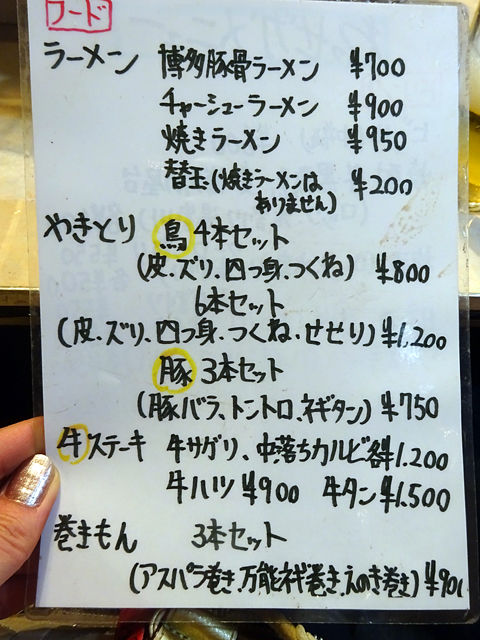 フード
ラーメン 博多豚骨ラーメン ¥700
チャーシューラーメン ¥900
焼きラーメン ¥950
替玉(焼きラーメンは ¥200
ありません)
やきとり 鳥 4本セット
(皮.ズリ.四つ身.つくね) ¥800
6本セット
(皮.ズリ、四つ身、つくね、せせり) ¥1,200
豚 3本セット
(豚バラ、トントロ、ネギタン) ¥750
牛ステーキ 牛サグリ、中落ちカルビ各¥1.200
牛ハツ ¥900 牛タン ¥1.500
巻きもん 3本セット
(アスパラ巻き.万能ネギ巻き.えのき巻き)